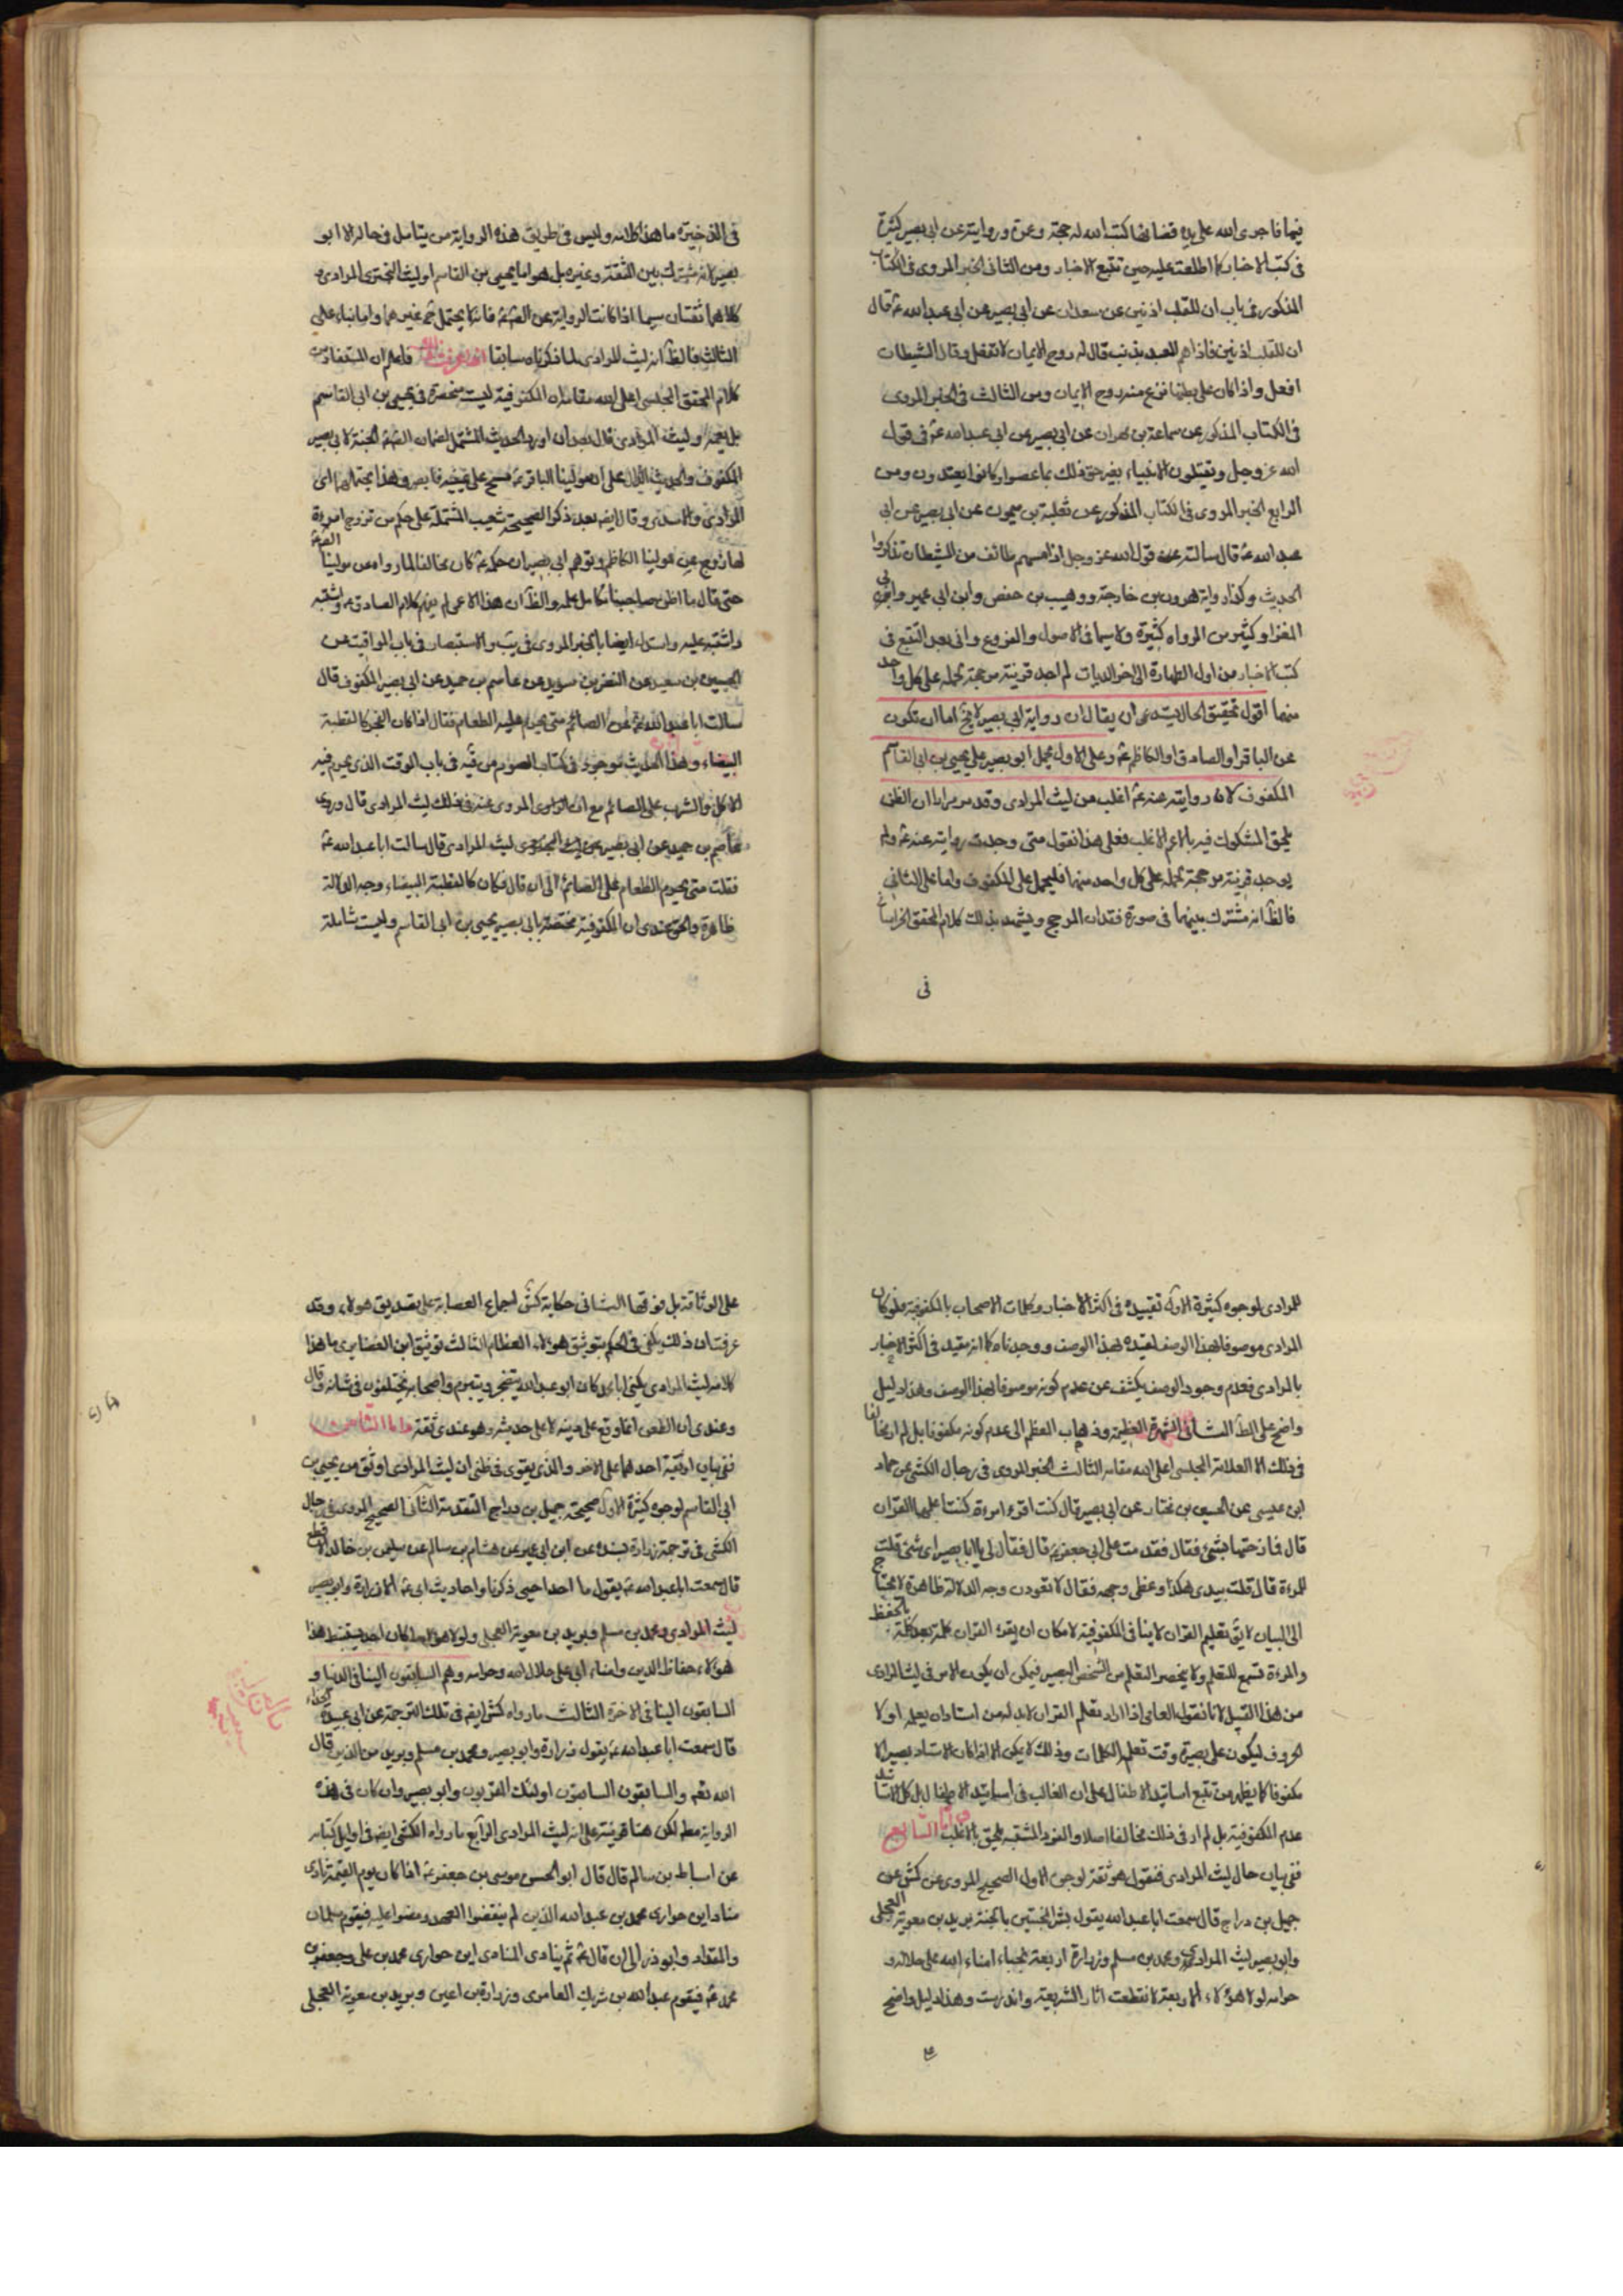 فيما فاجرى الله على يديه قضائها كتب الله له حجة وعمرة وروايته عن ابى بصير كثيرة
فى كتب الاخبار كما اطلعت عليه حين تتبع الاخبار ومن الثانى الخبر المروى فى الكتاب
المذكور فى باب ان للقلب اذنين عن سعدان عن ابى بصير عن ابى عبد الله عم قال
ان للقلب اذنين فاذا هم العبد بذنب قال له روح الايمان لا تفعل وقال الشيطان
افعل واذا كان على بطنها نزع منه روح الايمان ومن الثالث فى الخبر المروى
فى الكتاب المذكور عن سماعة بن مهران عن ابى بصير عن ابى عبد الله عم فى قول
الله عز وجل ويقتلون الانبياء بغير حق ذلك بما عصوا وكانوا يعتدون ومن
الرابع الخبر المروى فى الكتاب المذكور عن ثعلبة بن ميمون عن ابى بصير عن ابى
عبد الله عم قال سالته عن قول الله عز وجل اذا مسهم طائف من الشيطان تذكروا
الحديث وكذا رواية هرون بن خارجة ووهيب بن حفص وابن ابى عمير وابى
المغرا وكثير من الرواه كثيرة ولا سيما فى الاصول والفروع وانى بعد التتبع فى
كتب الاخبار من اول الطهارة الى اخر الديات لم اجد قرينة مرجحة لحمله على كل واحد
منهما اقول تحقيق الحال يستدعى ان يقال ان رواية ابى بصير لا يخ اما ان تكون
عن الباقر او الصادق او الكاظم عم وعلى الاول يحمل ابو بصير على يحيى بن ابى القاسم
المكفوف لان روايته عنه عم اغلب من ليث المرادى وقد مر مرارا ان الظن
يلحق المشكوك فيه بالاعم الاغلب فعلى هذا نقول متى وجدت روايته عنه عم ولم
يوجد قرينة مرجحة لحمله على كل واحد منهما فليحمل على المكفوف واما على الثانى
فالظ انه مشترك بينهما فى صورة فقدان المرجح ويشهد بذلك كلام المحقق الخراسانى
فى
فى الذخيرة ما هذا كلامه وليس فى طريق هذه الرواية من يتامل فى حاله الا ابو
بصير لانه مشترك بين الثقة وغيره بل هو اما يحيى بن القاسم او ليث البخترى المرادى و
كلاهما ثقتان سيما اذا كانت الرواية عن الص عم فانه لا يحتمل ثم غيرهما واما بناء على
الثالث فالظ انه ليث المرادى لما ذكرناه سابقا فاعلم ان المستفاد من
كلام المحقق المجلسى اعلى الله مقامه ان المكفوفية ليست منحصرة فى يحيى بن ابى القاسم
بل يعمه وليث المرادى قال بعد ان اورد الحديث المشتمل لضمان الص عم الجنة لابى بصير
المكفوف والحديث الدال على ان مولينا الباقر عم مسح على عينيه فابصر وهذا يحتملهما اى
المرادى والاسدى وقال ايضا بعد ذكر الصحيحة شعيب المشتملة على حكم من تزوج امرءة
لها زوج عن مولينا الكاظم وتوهم ابى بصير ان حكمه عم كان مخالفا لما رواه عن مولينا الص عم
حتى قال ما اظن صاحبنا تكامل علمه والظ ان هذا الاعمى لم يفهم كلام الصادق عم واشتبه
واشتبه عليه واستدل ايضا بالخبر المروى فى يب والاستبصار فى باب المواقيت عن
الحسين بن سعيد عن النضر بن سويد عن عاصم بن حميد عن ابى بصير المكفوف قال
سالت ابا عبد الله عم عن الصائم متى يحرم عليه الطعام فقال اذا كان الفجر كالقبطية
البيضاء وهذا الحديث موجود فى كتاب الصوم من فيه فى باب الوقت الذى يحرم فيه
الاكل والشرب على الصائم مع ان الراوى المروى عنه فى ذلك ليث المرادى قال وروى
عاصم بن حميد عن ابى بصير ليث المرادى قال سالت ابا عبد الله عم
فقلت متى يحرم الطعام على الصائم الى ان قال فكان كالقبطية البيضاء وجه الدلالة
ظاهرة والحق عندى ان المكفوفية مختصة بابى بصير يحيى بن ابى القاسم وليست شاملة
للمرادى لوجوه كثيرة الاول تقييده فى اكثر الاخبار وكلمات الاصحاب بالمكفوفية فلو كان
المرادى موصوفا بهذا الوصف لقيده بهذا الوصف ووجدناه كما انه مقيد فى اكثر الاخبار
بالمرادى فعدم وجود الوصف يكشف عن عدم كونه موصوفا بهذا الوصف وهذا دليل
واضح على الظ الثانى الشهرة العظيمة وذهاب العظم الى عدم كونه مكفوفا بل لم ار مخالفا
فى ذلك الا العلامة المجلسى اعلى الله مقامه الثالث الخبر المروى فى رجال الكشى عن حماد
ابن عيسى عن الحسين بن مختار عن ابى بصير قال كنت اقرء امرءة كنت اعلمها القران
قال فمازحتها بشئ فقال فقدمت على ابى جعفر عم قال فقال لى يا ابا بصير اى شئ قلت
للمرءة قال قلت بيدى هكذا وغطى وجهه فقال لا تعودن وجه الدلالة ظاهرة لا يحتاج
الى البيان لا يق تعليم القران لا ينافى المكفوفية لامكان ان يقرء القران كلمة بعد كلمة بالحفظ
والمرءة تسمع للتعلم ولا يحضر التعلم من الشخص البصير فيمكن ان يكون الامر فى ليث المرادى
من هذا القبيل لانا نقول العامى اذا اراد تعلم القران لا بد له من استادان يعلمه اولا
الحروف ليكون على بصيرة وقت تعلم الكلمات وذلك لا يمكن الا اذا كان الاستاد بصيرا لا
مكفوفا كما يظهر من تتبع اساتيد الاطفال على ان الغالب فى اساتيد الاطفال بل كل الاساتيد
عدم المكفوفية بل لم ار فى ذلك مخالفا اصلا والفرد المشتبه يلحق بالاغلب واما السابع
ففى بيان حال ليث المرادى فنقول هو ثقة لوجوه الاول الصحيح المروى عن كش عن
جميل بن دراج قال سمعت ابا عبد الله يقول بشر المخبتين بالجنة بريد بن معوية العجلى
وابو بصير ليث المرادى ومحمد بن مسلم وزرارة اربعة نجباء امناء الله على حلاله و
حرامه لولا هؤلاء الاربعة لانقطعت اثار الشريعة واندرست وهذا دليل واضح
على الوثاقة بل فوقها الثانى حكاية كش اجماع العصابة على تصديق هؤلاء وقد
عرفت ان ذلك يكفى فى الحكم بتوثيق هؤلاء العظام الثالث توثيق ابن الغضايرى ما هذا
كلامه ليث المرادى يكنى ابا كان ابو عبد الله يتضجر ويتبرم واصحابه مختلفون فى شانه وقال
وعندى ان الطعن انما وقع على دينه لا على حديثه وهو عندى ثقة واما الثامن
ففى بيان اوثقية احدهما على الاخر والذى يقوى فى ظنى ان ليث المرادى اوثق من يحيى بن
ابى القاسم لوجوه كثيرة الاول صحيحة جميل بن دراج المتقدمة الثانى الصحيح المروى فى رجال
الكشى فى ترجمة زرارة بسنده عن ابن ابى عمير عن هشام بن سالم عن سليمن بن خالد الاقطع
قال سمعت ابا عبد الله عم يقول ما احد احيى ذكرنا واحاديث ابى عم الا زرارة وابو بصير
ليث المرادى ومحمد بن مسلم وبريد بن معوية العجلى ولولا هؤلاء ما كان احد يستنبط هذا
هؤلاء حفاظ الدين وامناء ابى على حلال الله وحرامه وهم السابقون الينا فى الدنيا و
السابقون الينا فى الاخرة الثالث ما رواه كش ايضا فى تلك الترجمة عن ابى عبيدة الحذاء
قال سمعت ابا عبد الله عم يقول زرارة وابو بصير ومحمد بن مسلم وبريد من الذين قال
الله تعم والسابقون السابقون اولئك المقربون وابو بصير وان كان فى هذه
الرواية مطلق لكن هنا قرينة على انه ليث المرادى الرابع ما رواه الكشى ايضا فى اوايل كتابه
عن اسباط بن سالم قال قال ابو الحسن موسى بن جعفر عم اذا كان يوم القيمة نادى
مناد اين حوارى محمد بن عبد الله الذين لم ينقضوا العهد ومضوا عليه فيقوم سلمان
والمقداد وابوذر الى ان قال ثم ينادى المنادى اين حوارى محمد بن على وجعفر بن
محمد عم فيقوم عبد الله بن شريك العامرى وزرارة بن اعين وبريد بن معوية العجلى